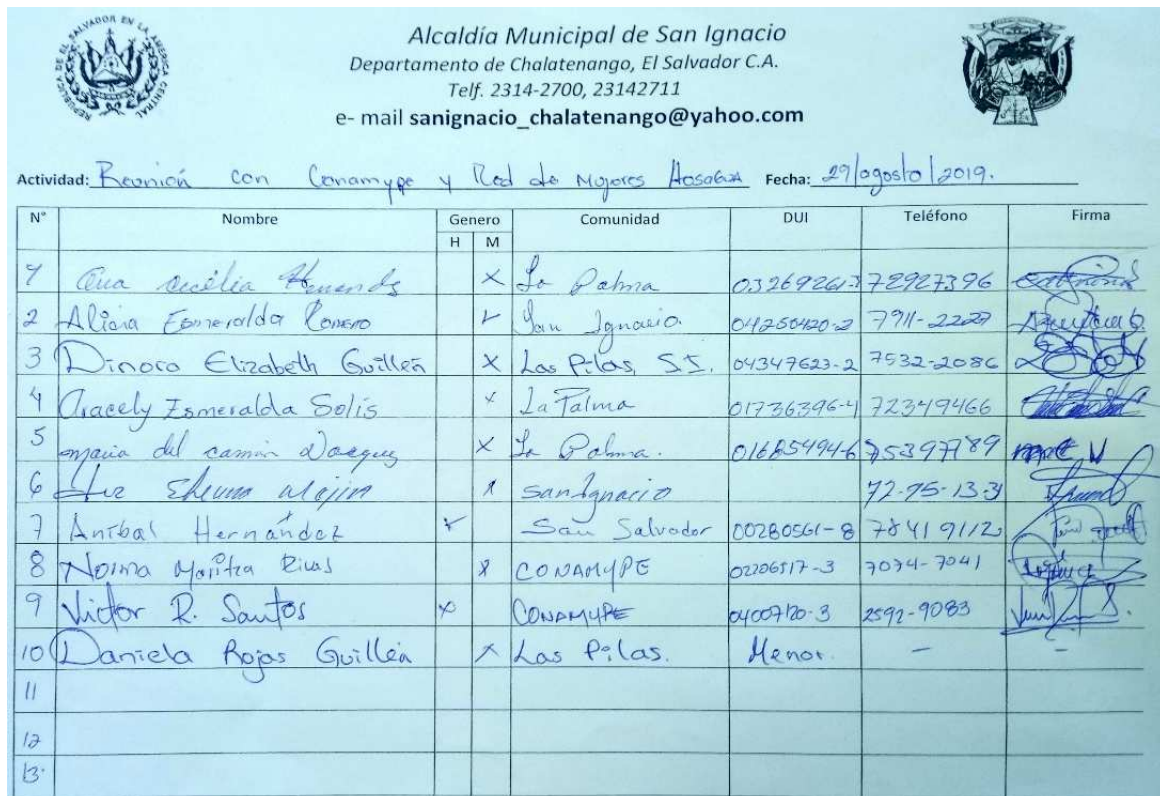 REPUBLICA DE EL SALVADOR EN LA AMERICA CENTRAL
Alcaldía Municipal de San Ignacio
Departamento de Chalatenango, El Salvador C.A.
Telf. 2314-2700, 23142711
e- mail sanignacio_chalatenango@yahoo.com
Actividad: Reunión con Conamype y Red de Mujeres Fecha: 29/agosto/2019.
N° Nombre Genero Comunidad DUI Teléfono Firma
H M
1 Ana Cecilia x La Palma 72927396
2 Alicia Esmeralda Romero San Ignacio. 04250420-2 7911-2227
3 Dinora Elizabeth Guillén x Las Pilas, S.I. 04347623-2 7532-2086
4 Aracely Esmeralda Solis x La Palma 01736396-4 72349466
5 maria del x La Palma. 75397789
6 x San Ignacio 72-75-13-31
7 Aníbal Hernández x San Salvador 00280561-8 78419112
8 Norma Maritza Rivas x CONAMYPE 02206517-3 7074-7041
9 Victor R. Santos x CONAMYPE 04007120-3 2592-9083
10 Daniela Rojas Guillén x Las Pilas. Menor. — -
11
12
13.